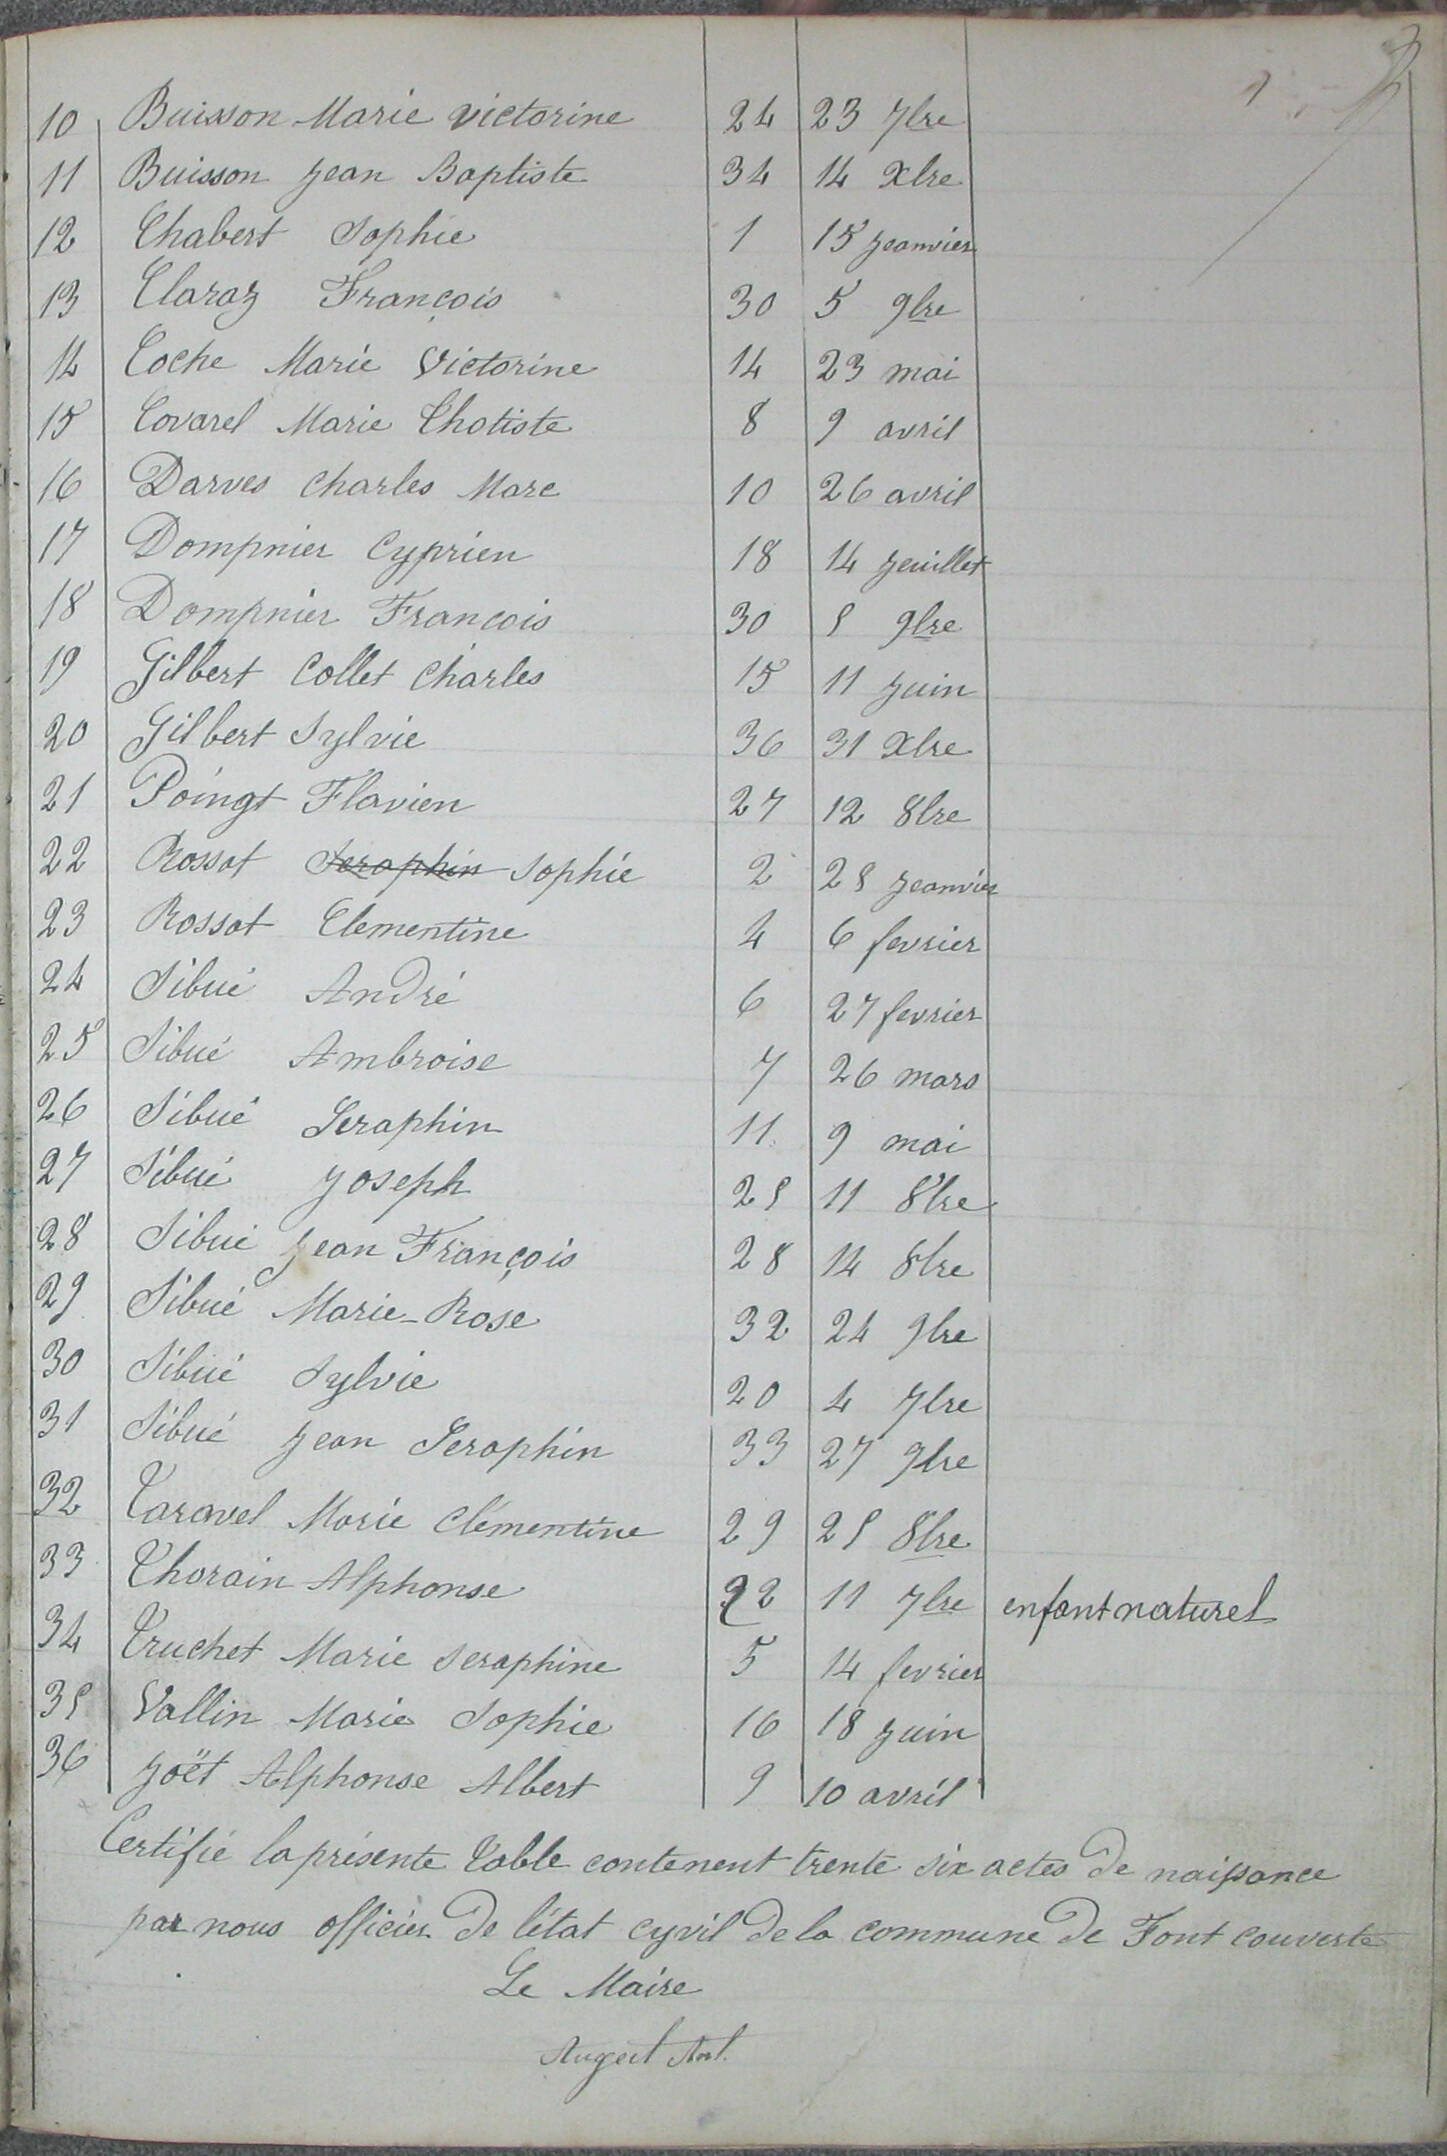 10 Buisson Marie Victorine 24 23 7bre
11 Buisson Jean Baptiste 34 14 Xbre
12 Chabert Sophie 1 15 jeanvier
13 Claraz François 30 5 9bre
14 Coche Marie Victorine 14 23 mai
15 Covarel Marie Chotiste 8 9 avril
16 Darves Charles Marc 10 26 avril
17 Dompnier Cyprien 18 14 jeuillet
18 Dompnier Francois 30 5 9bre
19 Gilbert Collet Charles 15 11 juin
20 Gilbert Sylvie 36 31 Xbre
21 Poingt Flavien 27 12 8bre
22 Rossat Seraphin Sophie 2 25 jeanvier
23 Rossat Clementine 4 6 fevrier
24 Sibué André 6 27 fevrier
25 Sibué Ambroise 7 26 mars
26 Sibué Seraphin 11 9 mai
27 Sibué Joseph 25 11 8bre
28 Sibué Jean François 28 14 8bre
29 Sibué Marie-Rose 32 24 9bre
30 Sibué Sylvie 20 4 7bre
31 Sibué Jean Seraphin 33 27 9bre
32 Taravel Marie Clémentine 29 25 8bre
33 Thorain Alphonse 22 11 7bre enfant naturel
34 Truchet Marie Seraphine 5 14 fevrier
35 Vallin Marie Sophie 16 18 juin
36 Joët Alphonse Albert 9 10 avril
Certifié la présente Table contenent trente six actes de naissance
par nous officier de l'état cyvil de la commune de Font couverte
Le Maire
Augert